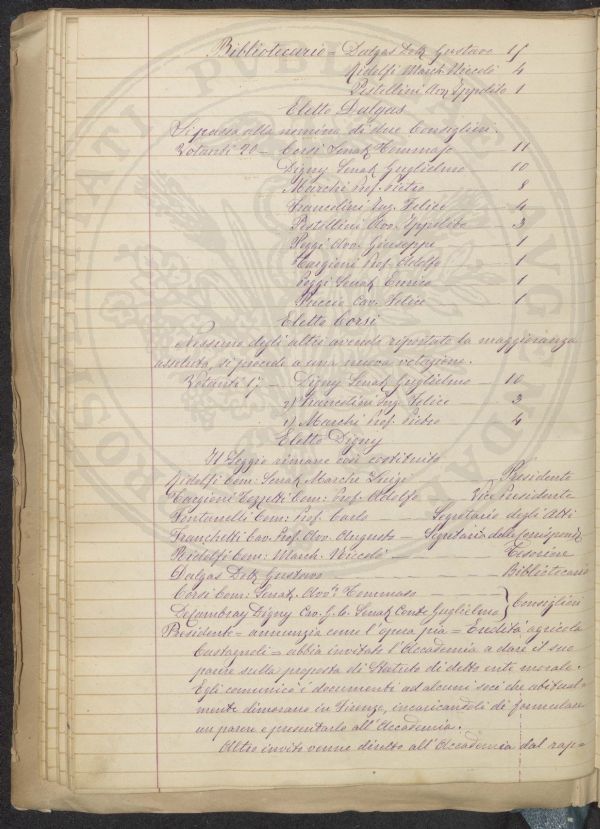 Bibliotecario = Dalgas Dott. Gustavo 15
Ridolfi March. Niccolò 4
Pestellini Avv. Ippolito 1
Eletto Dalgas.
Si passa alla nomina di due Consiglieri.
Votanti 20 — Corsi Senat. Tommaso — 11
Digny Senat. Guglielmo — 10
Marchi Prof. Pietro — 8
Francolini Ing. Felice — 4
Pestellini Avv. Ippolito — 3
Poggi Avv. Giuseppe — 1
Targioni Prof. Adolfo — 1
Poggi Senat. Enrico — 1
Puccio Cav. Felice — 1
Eletto Corsi
Nessuno degli altri avendo riportato la maggioranza
assoluta, si procede a una nuova votazione.
Votanti 17 — Digny Senat. Guglielmo — 10
Francolini Ing. Felice — 3
Marchi Prof. Pietro — 4
Eletto Digny
Il Seggio rimane così costituito
Ridolfi Com: Senat. Marche Luigi — Presidente
Targioni Tozzetti Com: Prof. Adolfo — Vice Presidente
Fontanelli Com: Prof. Carlo — Segretario degli Atti
Franchetti Cav. Prof. Avv. Augusto — Segretario delle Corrispond.
Ridolfi Com: March. Niccolò — Tesoriere
Dalgas Dott. Gustavo — Bibliotecario
Corsi Com: Senat. Avv. Tommaso —
Decambray Digny Cav. G. C. Senat. Conte Guglielmo } Consiglieri
Presidente = annunzia come l'opera pia = Eredità agricola
Castagnoli = abbia invitato l'Accademia a dare il suo
parere sulla proposta di Statuto di detto ente morale.
Egli comunicò i documenti ad alcuni soci che abitual-
mente dimorano in Firenze, incaricandoli di formulare
un parere e presentarlo all'Accademia.
Altro invito venne diretto all'Accademia dal rap=